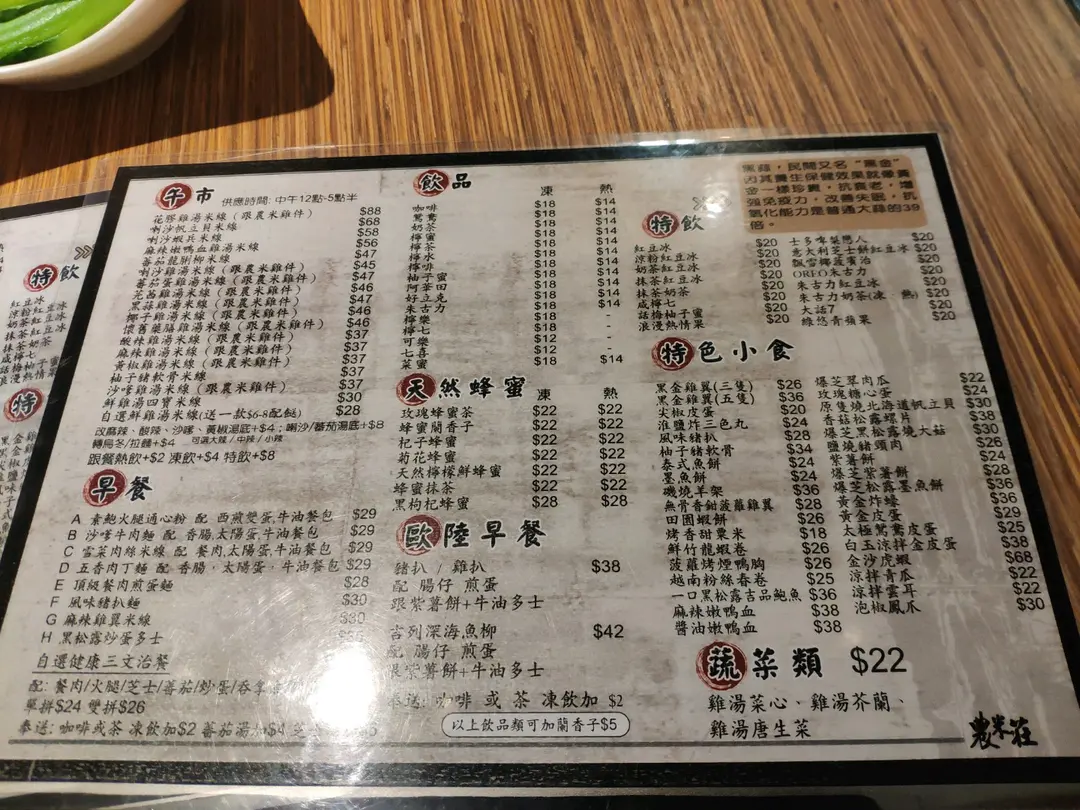 午市 供應時間: 中午12點-5點半
花膠雞湯米線 (跟農米雞件) $88
喇沙帆立貝米線 $68
喇沙蝦兵米線 $58
麻辣嫩鴨血雞湯米線 $56
蕃茄龍脷柳米線 $47
喇沙雞湯米線 (跟農米雞件) $45
蕃茄蛋雞湯米線 (跟農米雞件) $47
花菇雞湯米線 (跟農米雞件) $46
黑蒜雞湯米線 (跟農米雞件) $47
椰子雞湯米線 (跟農米雞件) $46
懷舊藥膳雞湯米線 (跟農米雞件) $46
酸辣雞湯米線 (跟農米雞件) $37
麻辣雞湯米線 (跟農米雞件) $37
黃椒雞湯米線 (跟農米雞件) $37
柚子豬軟骨米線
沙嗲雞湯米線 (跟農米雞件) $37
鮮雞湯四寶米線 $30
自選鮮雞湯米線(送一款$6-8配餸) $28
改麻辣、酸辣、沙嗲、黃椒湯底+$4；喇沙/蕃茄湯底+$8
轉烏冬/拉麵+$4 可選大辣/中辣/小辣
跟餐熱飲+$2 凍飲+$4 特飲+$8
早餐
A 素鮑火腿通心粉 配 西煎雙蛋,牛油餐包 $29
B 沙嗲牛肉麵 配 香腸,太陽蛋,牛油餐包 $29
C 雪菜肉絲米線 配 餐肉,太陽蛋,牛油餐包 $29
D 五香肉丁麵 配 香腸，太陽蛋，牛油餐包 $29
E 頂級餐肉煎蛋麵 $28
F 風味豬扒麵 $30
G 麻辣雞翼米線 $30
H 黑松露炒蛋多士
自選健康三文治餐
配: 餐肉/火腿/芝士/蕃茄/炒蛋/吞拿
單拼$24 雙拼$26
奉送: 咖啡或茶 凍飲加$2 蕃茄湯加$4
飲品 凍 熱
咖啡 $18 $14
鴛鴦 $18 $14
奶茶 $18 $14
檸蜜 $18 $14
檸茶 $18 $14
檸水 $18 $14
檸啡 $18 $14
柚子蜜 $18 $14
阿華田 $18 $14
好立克 $18 $14
朱古力 $18 $14
檸樂 $18 -
檸七 $18 -
可樂 $12 -
七喜 $12 -
菜蜜 $18 $14
天然蜂蜜 凍 熱
玫瑰蜂蜜茶 $22 $22
蜂蜜蘭香子 $22 $22
杞子蜂蜜 $22 $22
菊花蜂蜜 $22 $22
天然檸檬鮮蜂蜜 $22 $22
蜂蜜抹茶 $22 $22
黑枸杞蜂蜜 $28 $28
歐陸早餐
豬扒 / 雞扒 $38
配 腸仔 煎蛋
跟紫薯餅+牛油多士
吉列深海魚柳 $42
配 腸仔 煎蛋
跟紫薯餅+牛油多士
奉送: 咖啡 或 茶 凍飲加 $2
以上飲品類可加蘭香子$5
黑蒜，民間又名“黑金”
因其養生保健效果就像黃
金一樣珍貴，抗衰老，增
強免疫力，改善失眠，抗
氧化能力是普通大蒜的39
倍。
特飲
紅豆冰 $20
涼粉紅豆冰 $20
奶茶紅豆冰 $20
抹茶紅豆冰 $20
抹茶奶茶 $20
咸檸七 $20
話梅柚子蜜 $20
浪漫熱情果 $20
士多啤梨戀人 $20
意大利芝士餅紅豆冰 $20
飄雪椰菠蜜冶 $20
OREO朱古力 $20
朱古力紅豆冰 $20
朱古力奶茶(凍 熱) $20
大話7 $20
綠悠青蘋果 $20
特色小食
黑金雞翼(三隻) $26
黑金雞翼(五隻) $36
尖椒皮蛋 $20
淮鹽炸三色丸 $24
風味豬扒 $28
柚子豬軟骨 $34
泰式魚餅 $24
墨魚餅 $24
磯燒羊架 $36
無骨香釉菠蘿雞翼 $36
田園蝦餅 $28
烤香甜粟米 $18
鮮竹龍蝦卷 $26
菠蘿烤煙鴨胸 $26
越南粉絲春卷 $25
一口黑松露吉品鮑魚 $36
麻辣嫩鴨血 $38
醬油嫩鴨血 $38
爆芝翠肉瓜 $22
玫瑰糖心蛋 $24
原隻燒北海道帆立貝 $30
香菇松露螺片 $38
爆芝黑松露燒大菇 $30
鹽燒豬頸肉 $26
紫薯餅 $24
爆芝紫薯餅 $28
爆芝松露墨魚餅 $36
黃金炸蠔 $36
黃金皮蛋 $29
太極鴛鴦皮蛋 $25
白玉涼拌金皮蛋 $38
金沙虎蝦 $68
涼拌青瓜 $22
涼拌雲耳 $22
泡椒鳳爪 $30
蔬菜類 $22
雞湯菜心、雞湯芥蘭、
雞湯唐生菜
農米莊
特飲
紅豆冰
涼粉紅豆冰
奶茶紅豆冰
抹茶紅豆冰
抹茶奶茶
咸檸七
話梅柚子
浪漫熱情
特